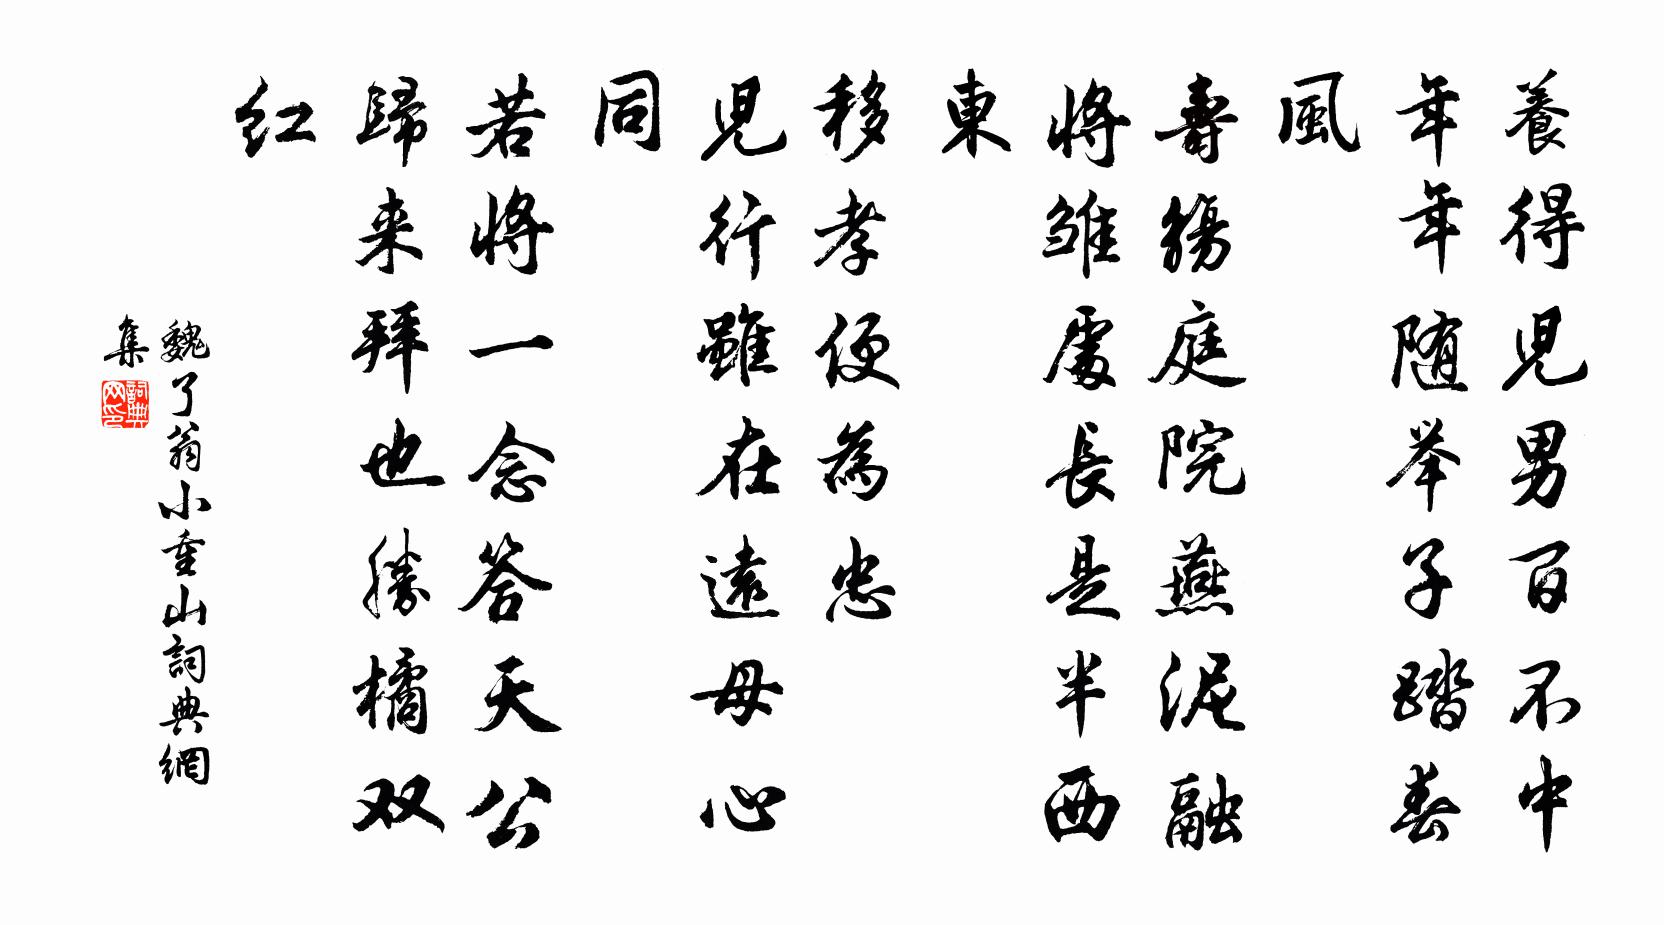 養得児男百不中
年年随举子踏春
風
壽觴庭院燕泥融
將雏處長是半西
東
移孝便為忠
児行雖在遠母心
同
若將一念答天公
歸来拜也勝橘双
红
魏了翁小重山詞典網
集
詞典网印